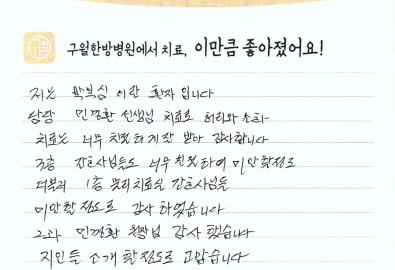 구월한방병원에서 치료, 이만큼 좋아졌어요!
저는 박복심 이란 환자 입니다
담당 민경환 선생님 치료로 허리와 소화
치료는 너무 친절하게 잘 받아 감사합니다
3층 간호사님들도 너무 친절하여 미안할정도로
더불어 1층 물리치료실 간호사님들
미안할 정도로 감사 하였습니다
그리고 민경환 원장님 감사 했습니다
지인들 소개 할정도로 고맙습니다